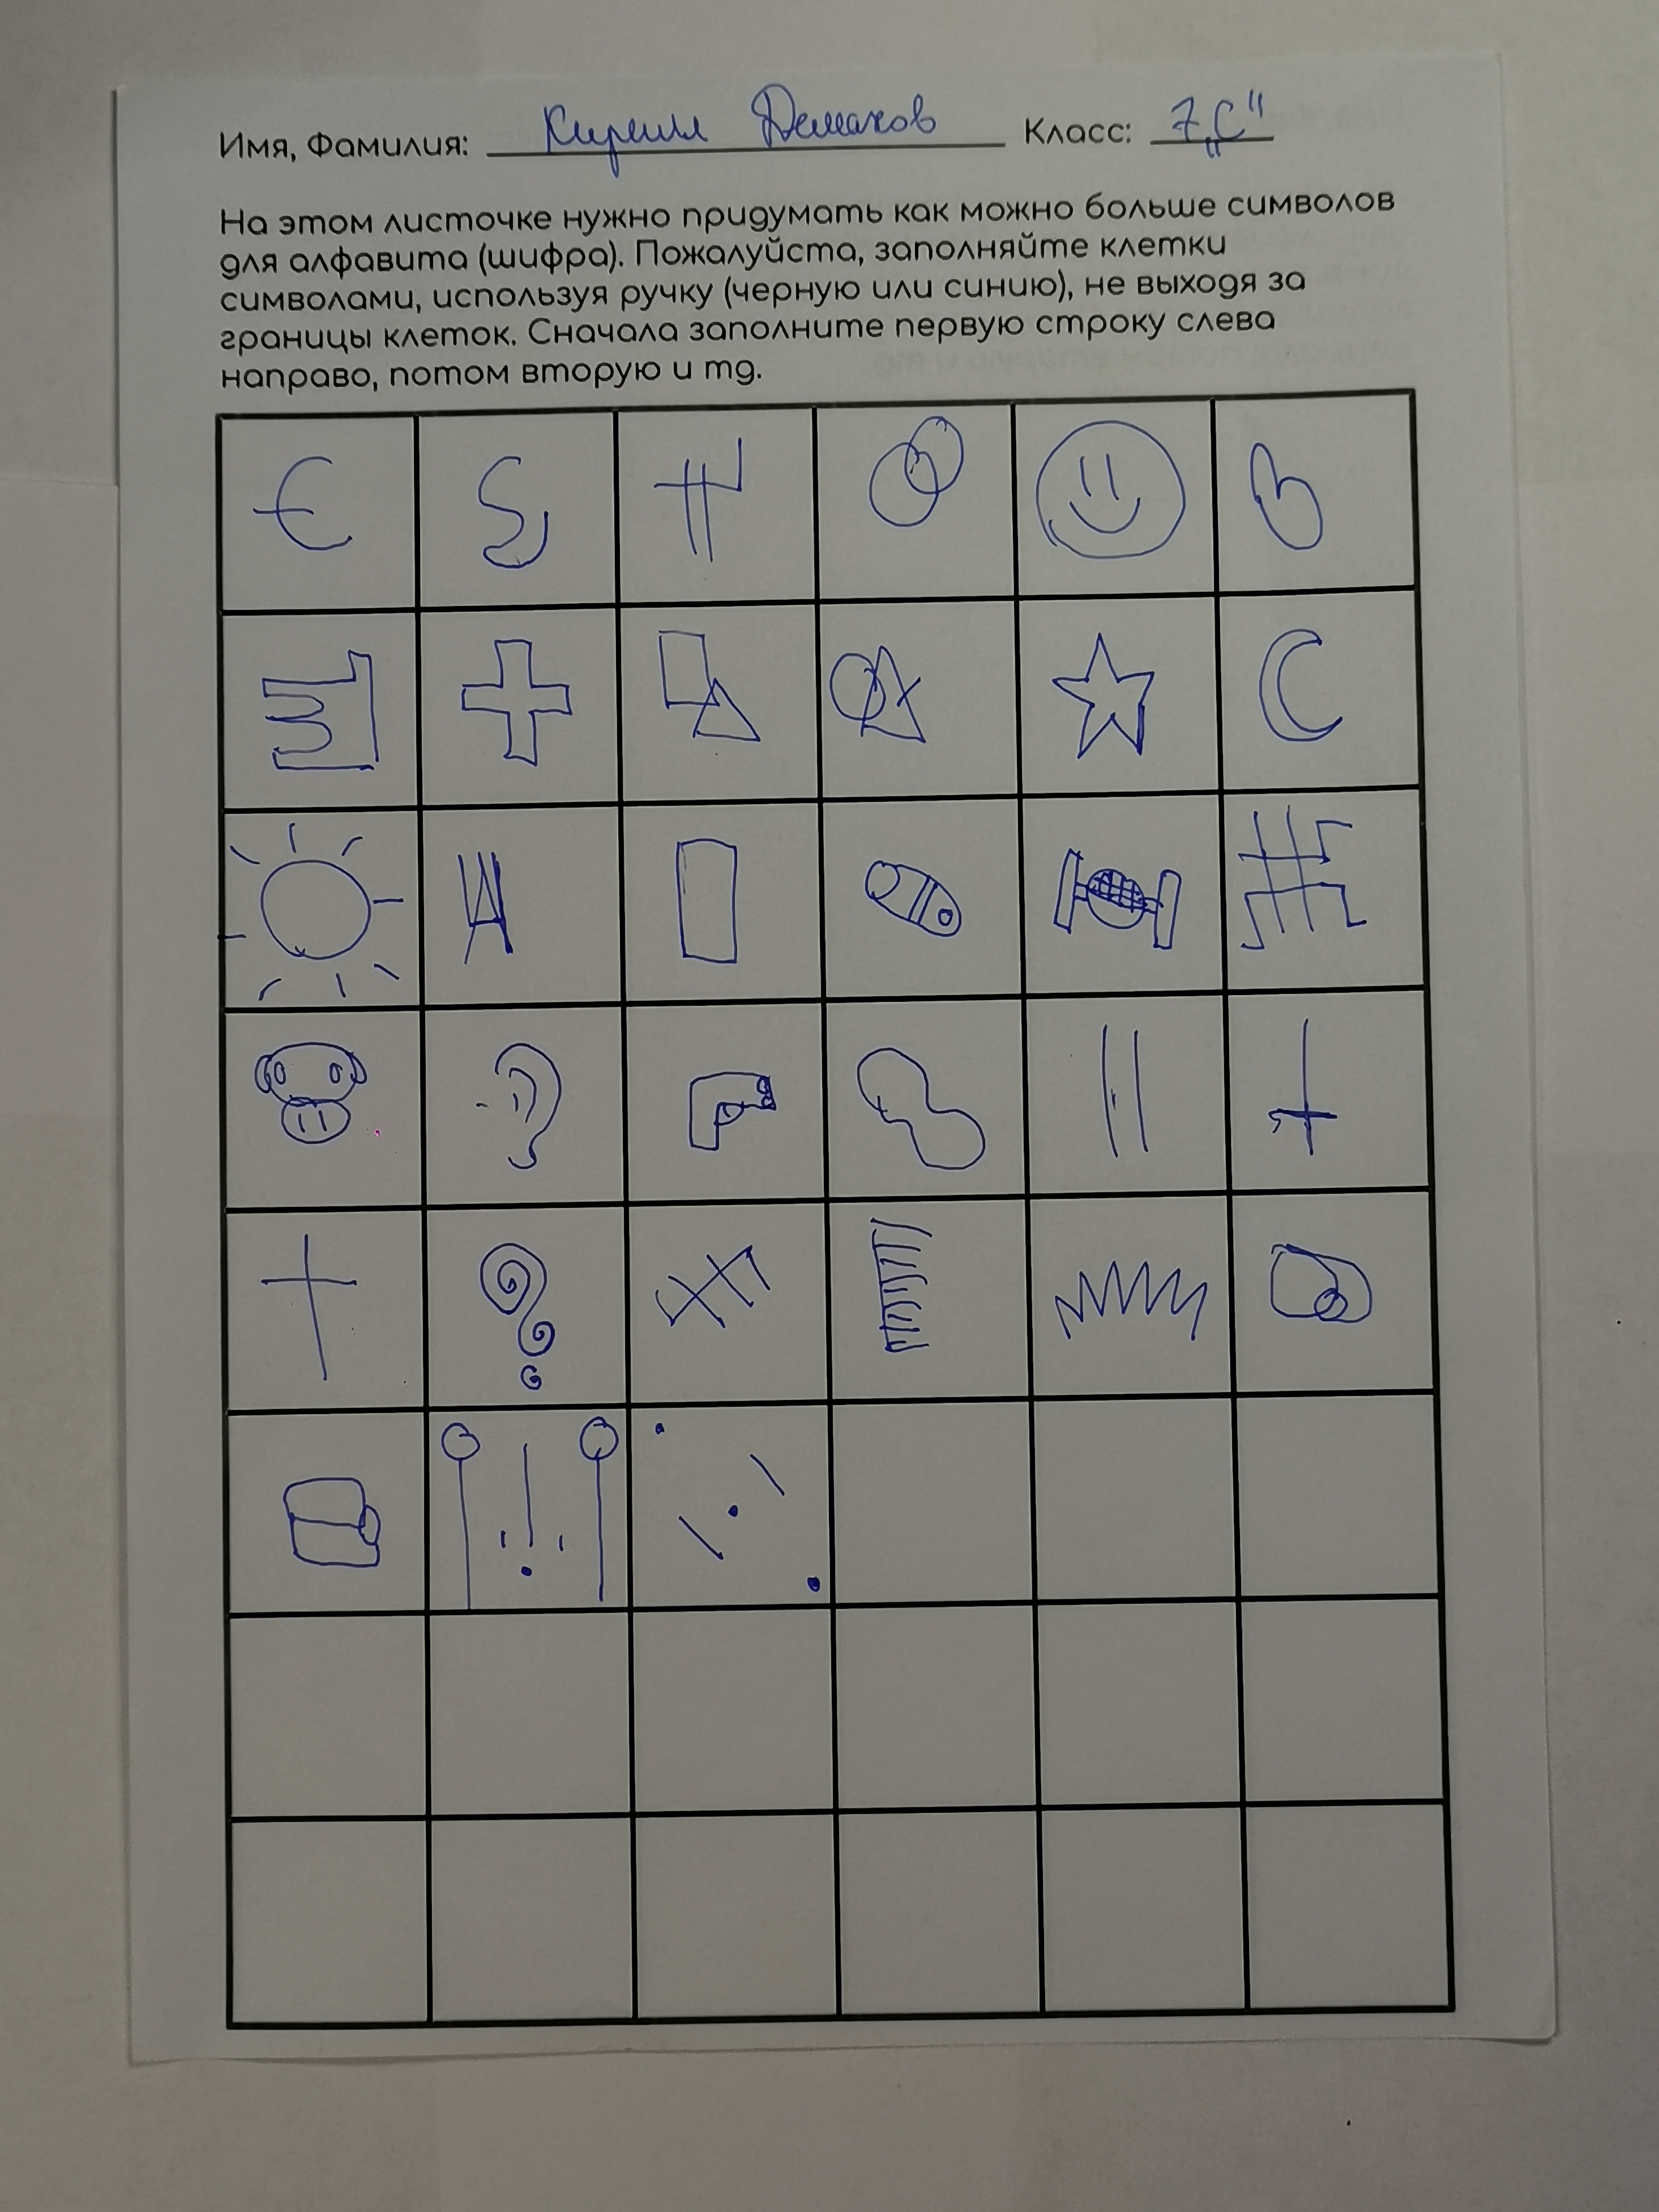 Имя, Фамилия: Кирилл Демахов Класс: 7 „С"
На этом листочке нужно придумать как можно больше символов
для алфавита (шифра). Пожалуйста, заполняйте клетки
символами, используя ручку (черную или синию), не выходя за
границы клеток. Сначала заполните первую строку слева
направо, потом вторую и тд.